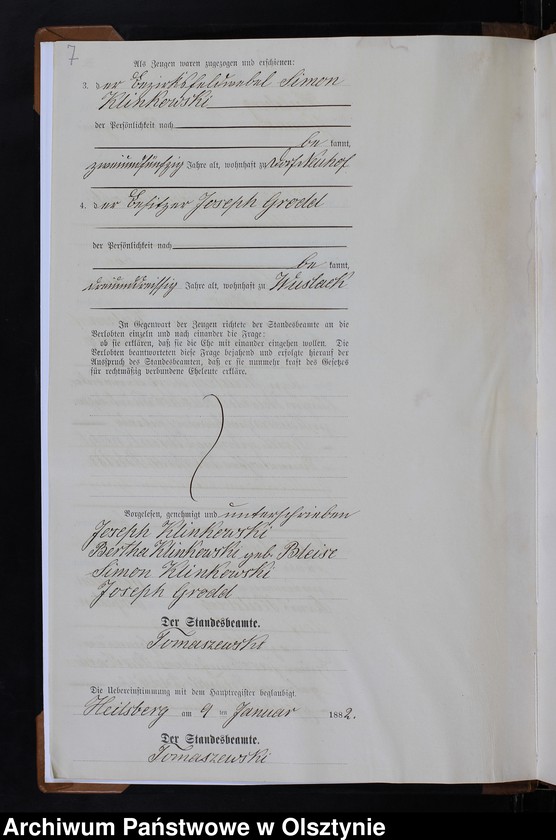 7
Als Zeugen waren zugezogen und erschienen:
3. der Bezirksfeldwebel Simon
Klinkowski
der Persönlichkeit nach
be kannt,
zweiundfünfzig Jahre alt, wohnhaft zu Dorf Neuhof
4. der Besitzer Joseph Grodd
der Persönlichkeit nach
be kannt,
dreiunddreissig Jahre alt, wohnhaft zu Wuslack
In Gegenwart der Zeugen richtete der Standesbeamte an die
Verlobten einzeln und nach einander die Frage:
ob sie erklären, daß sie die Ehe mit einander eingehen wollen. Die
Verlobten beantworteten diese Frage bejahend und erfolgte hierauf der
Ausspruch des Standesbeamten, daß er sie nunmehr kraft des Gesetzes
für rechtmäßig verbundene Eheleute erkläre.
Vorgelesen, genehmigt und unterschrieben
Joseph Klinkowski
Bertha Klinkowski geb. Bleise
Simon Klinkowski
Joseph Grodd
Der Standesbeamte.
Tomaszewski
Die Uebereinstimmung mit dem Hauptregister beglaubigt.
Heilsberg am 9 ten Januar 1882.
Der Standesbeamte.
Tomaszewski
Archiwum Państwowe w Olsztynie